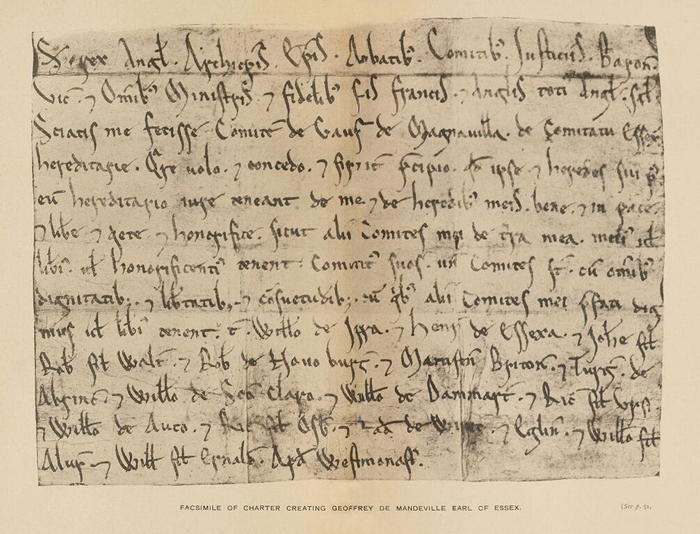 S. rex Angl. Archiepis. Epis. Abbatib'. Comitib'. Justiciis. Baron.
Vic. ⁊ Omib' Ministris ⁊ fidelib' suis francis. ⁊ Anglis toti Angl. sal.
Sciatis me fecisse Comitē de Gauf' de Magnauilla. de Comitatu Essex
hereditarie. Qre uolo. ⁊ concedo. ⁊ firmit' p̄cipio. qd̄ ipse ⁊ heredes sui p'
eū hereditario iure teneant de me. ⁊ de heredib' meis. bene. ⁊ in pace
⁊ libe' ⁊ qete ⁊ honorifice. sicut alii Comites mei de t'ra mea. meli' ul'
libi'. ul' honorificenti' tenent Comitat' suos. un' Comites st. cū omib'
dignitatib; ⁊ lib'tatib; ⁊ cōsuetudib;. cū qb' alii Comites mei p̄fati dig
nius ul' libi' tenent. t'. Will'o de Ipra. ⁊ Henr' de Essexa. ⁊ Joh'e fil'
Rob' fil' Walt'. ⁊ Rob' de Nouo burg'. ⁊ Main' Briton'. ⁊ Turg' de
Abrinc' ⁊ Will'o de Scō Claro. ⁊ Will'o de Dammart'. ⁊ Ric' fil' Ursi
⁊ Will'o de Auco. ⁊ Ric' fil' Osb'. ⁊ Rad' de ⁊ Eglin'. ⁊ Will'o fil'
Alur' ⁊ Will' fil' Ernald'. Apd' Westmonast'.
FACSIMILE OF CHARTER CREATING GEOFFREY DE MANDEVILLE EARL OF ESSEX.
[See p. 51.